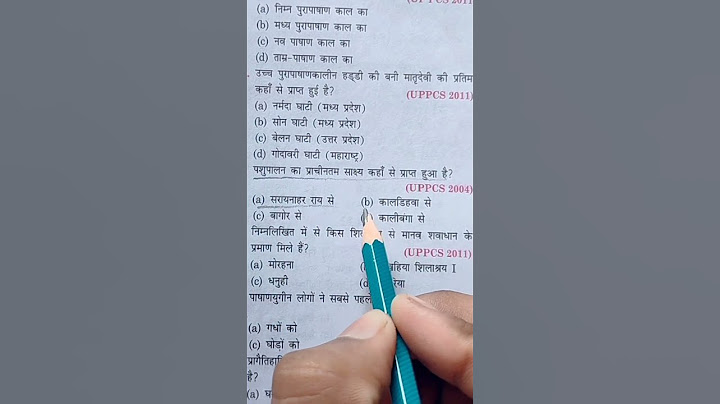 (UPPCS 2011)
(a) निम्न पुरापाषाण काल का
(b) मध्य पुरापाषाण काल का
(c) नव पाषाण काल का
(d) ताम्र-पाषाण काल का
उच्च पुरापाषाणकालीन हड्डी की बनी मातृदेवी की प्रतिम
कहाँ से प्राप्त हुई है?
(UPPCS 2011)
(a) नर्मदा घाटी (मध्य प्रदेश)
(b) सोन घाटी (मध्य प्रदेश)
(c) बेलन घाटी (उत्तर प्रदेश)
(d) गोदावरी घाटी (महाराष्ट्र)
पशुपालन का प्राचीनतम साक्ष्य कहाँ से प्राप्त हुआ है?
(UPPCS 2004)
(a) सरायनाहर राय से (b) कालडिहवा से
(c) बागोर से कालीबंगा से
निम्नलिखित में से किस से मानव शवाधान के
प्रमाण मिले हैं?
(UPPCS 2011)
(a) मोरहना शिलाश्रय I
(c) धनुही
पाषाणयुगीन लोगों ने सबसे
(a) गधों को
(c) घोड़ों को
है?
(a)